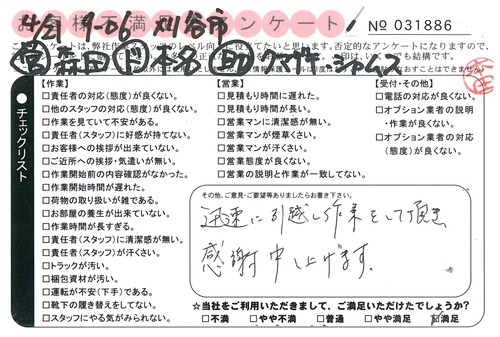 お客様不満足アンケート
№ 031886
4/21 9-06 刈谷市
営 森田 助 クマ作. ジャムス
チェックリスト
【作業】
□責任者の対応(態度)が良くない。
□他のスタッフの対応(態度)が良くない。
□作業を見ていて不安がある。
□責任者(スタッフ)に好感が持てない。
□お客様への挨拶が出来ていない。
□ご近所への挨拶・気遣いが無い。
□作業開始前の内容確認がなかった。
□作業開始時間が遅れた。
□荷物の取り扱いが雑である。
□お部屋の養生が出来ていない。
□作業時間が長すぎる。
□責任者(スタッフ)に清潔感が無い。
□責任者(スタッフ)が汗くさい。
□トラックが汚い。
□梱包資材が汚い。
□運転が不安(下手)である。
□靴下の履き替えをしてない。
□スタッフにやる気がみられない。
【営業】
□見積もり時間に遅れた。
□見積もり時間が長い。
□営業マンに清潔感が無い。
□営業マンが煙草くさい。
□営業マンが汗くさい。
□営業態度が良くない。
□営業の説明と作業が一致してない。
【受付・その他】
□電話の対応が良くない。
□オプション業者の説明・作業が良くない。
□オプション業者の対応(態度)が良くない。
その他、ご意見・ご要望等ありましたらお書き下さい。
迅速に引越し作業をして頂き
感謝申し上げます。
☆当社をご利用いただきまして、ご満足いただけたでしょうか?
□不満 □やや不満 □普通 □やや満足 □満足